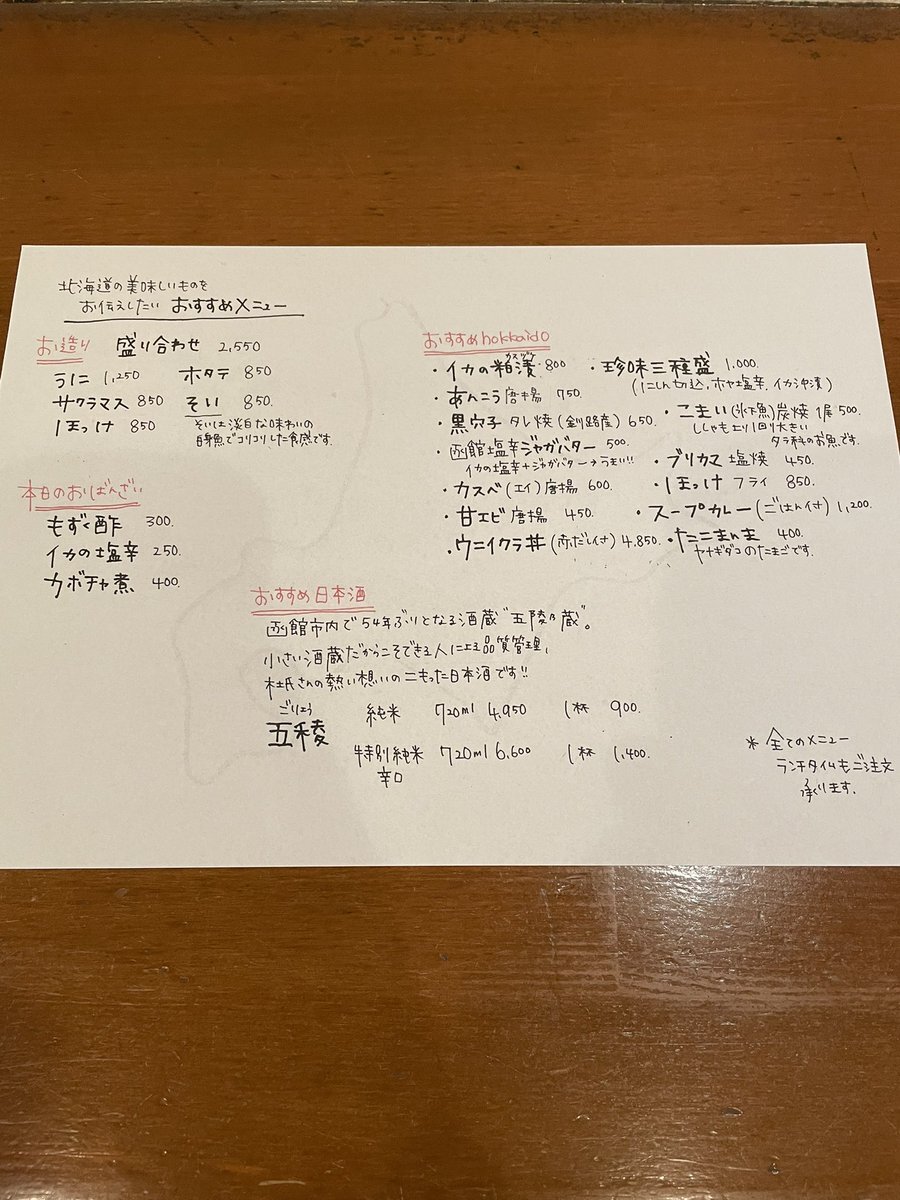 北海道の美味しいものを
お伝えしたい おすすめメニュー
お造り 盛り合わせ 2,550
うに 1,250 ホタテ 850
サクラマス 850 そい 850.
ほっけ 850 そいは淡白な味わいの
白身魚でコリコリした食感です。
本日のおばんざい
もずく酢 300.
イカの塩辛 250.
カボチャ煮 400.
おすすめhokkaido
・イカの粕漬 800
カスヅケ
・あんこう唐揚 750.
・黒穴子 タレ焼(釧路産) 650
・函館塩辛ジャガバター 500.
イカの塩辛+ジャガバター→うまい!!
・カスベ(エイ)唐揚 600.
・甘エビ唐揚 450.
・ウニイクラ丼(赤だし付) 4,850.
・珍味三種盛 1,000.
(にしん切込,ホヤ塩辛,イカ沖漬)
・こまい(氷下魚)炭焼 1尾 500.
ししゃもより1回り大きい
タラ科のお魚です。
・ブリカマ塩焼 450.
・ほっけ フライ 850.
・スープカレー(ごはん付) 1,200.
・たこまんま 400.
ヤナギダコのたまごです。
おすすめ日本酒
函館市内で54年ぶりとなる酒蔵"五稜乃蔵"。
小さい酒蔵だからこそできる人による品質管理、
杜氏さんの熱い想いのこもった日本酒です!!
ごりょう
五稜 純米 720ml 4,950 1杯 900.
特別純米 720ml 6,600 1杯 1,400.
辛口
* 全てのメニュー
ランチタイムもご注文
承ります。